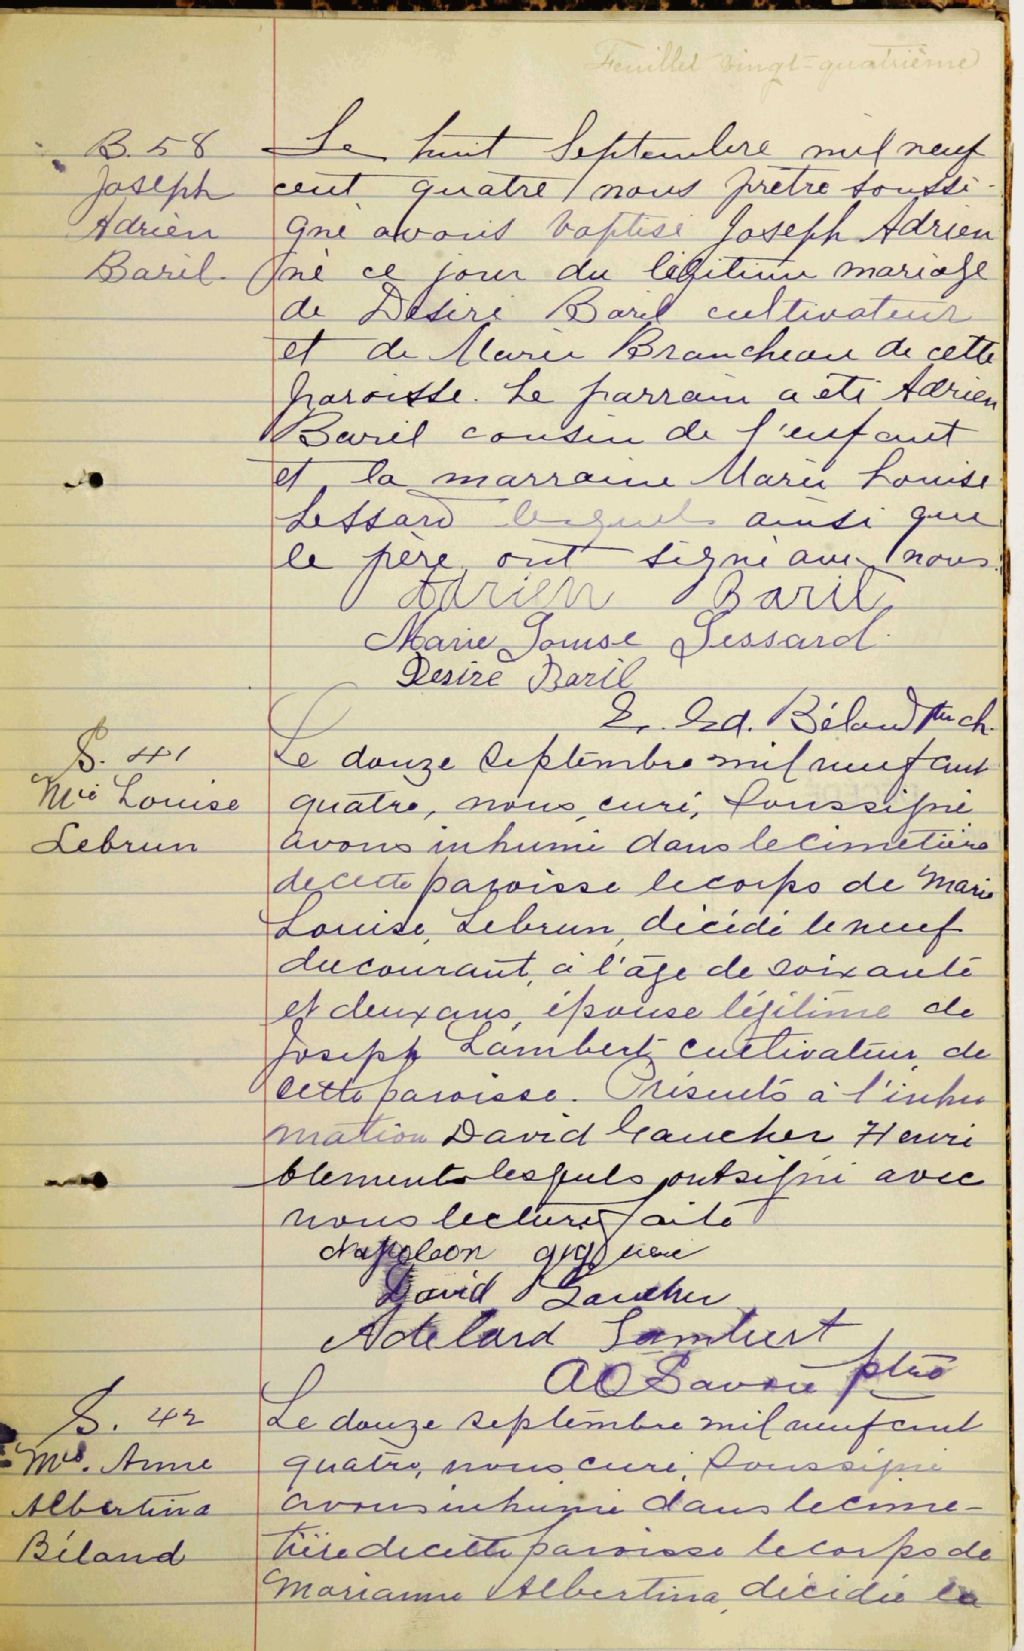 Feuillet vingt-quatrième
B. 58
Joseph
Adrien
Baril.
Le huit Septembre mil neuf
cent quatre nous prêtre soussi-
gné avons baptisé Joseph Adrien
né ce jour du légitime mariage
de Désiré Baril cultivateur
et de Marie Brancheau de cette
paroisse. Le parrain a été Adrien
Baril cousin de l'enfant
et la marraine Marie Louise
Lessard lesquels ainsi que
le père ont signé avec nous.
Adrien Baril
Marie Louise Lessard.
Desire Baril
Ed. Béland ch.
S. 41
Mie Louise
Lebrun
Le douze septembre mil neuf cent
quatre, nous, curé, soussigné
avons inhumé dans le cimetière
de cette paroisse le corps de Marie
Louise, Lebrun, décédé le neuf
du courant, à l'âge de soixante
et deux ans, épouse légitime de
Joseph Lambert, cultivateur, de
cette paroisse. Présents à l'inhu
mation David Gaucher Henri
Clement lesquels ont signé avec
nous lecture faite
Napoleon
David Gaucher
Adelard Lambert
AO Savoie ptre
S. 42
Mie. Anne
Albertina
Béland
Le douze septembre mil neuf cent
quatre, nous, curé, soussigné
avons inhumé dans le cime-
tière de cette paroisse le corps de
Marianne Albertina, décédée le